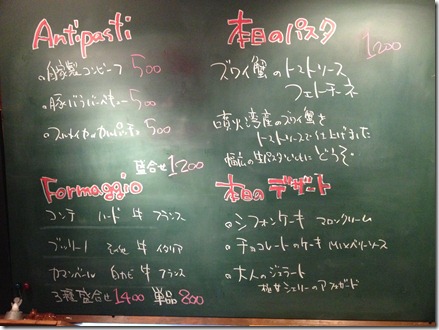 Antipasti
自家製コンビーフ 500
豚バラバーベキュー 500
カルパッチョ 500
盛合せ 1200
Formaggio
コンテ ハード 牛 フランス
牛 イタリア
カマンベール 白カビ 牛 フランス
3種盛合せ 1400 単品 800
本日のパスタ
1200
ズワイ蟹のトマトソース
フェトチーネ
噴火湾産のズワイ蟹を
トマトソースで仕上げました
幅広の生パスタといっしょに どうぞ。
本日のデザート
シフォンケーキ マロンクリーム
チョコレートのケーキ Mixベリーソース
大人のジェラート
極甘シェリーのアフォガード